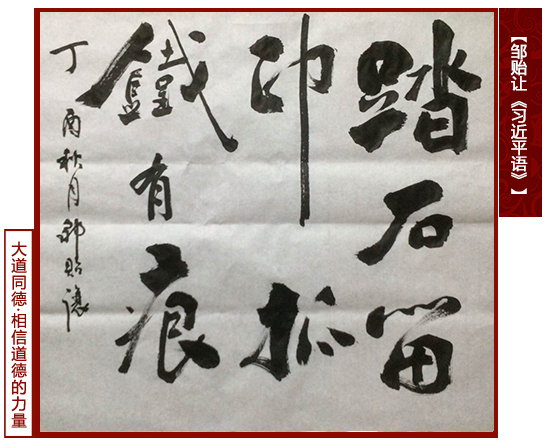 【邹贻让《习近平语》】
踏石留
印抓
鐵有痕
丁酉秋月鄒貽讓
大道同德·相信道德的力量